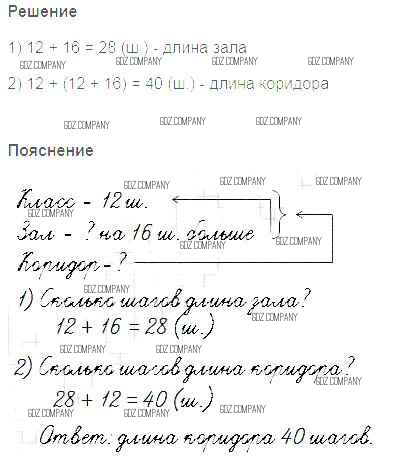 Решение
1) 12 + 16 = 28 (ш.) - длина зала
GDZ.COMPANY GDZ.COMPANY GDZ.COMPANY GDZ.COMPANY
2) 12 + (12 + 16) = 40 (ш.) - длина коридора
GDZ.COMPANY GDZ.COMPANY GDZ.COMPANY
Пояснение
GDZ.COMPANY GDZ.COMPANY GDZ.COMPANY
Класс - 12 ш.
GDZ.COMPANY
Зал - ? на 16 ш. больше
GDZ.COMPANY GDZ.COMPANY
Коридор - ?
GDZ.COMPANY
1) Сколько шагов длина зала?
GDZ.COMPANY
12 + 16 = 28 (ш.)
GDZ.COMPANY GDZ.COMPANY
2) Сколько шагов длина коридора?
GDZ.COMPANY
28 + 12 = 40 (ш.)
GDZ.COMPANY GDZ.COMPANY GDZ.COMPANY
Ответ: длина коридора 40 шагов.